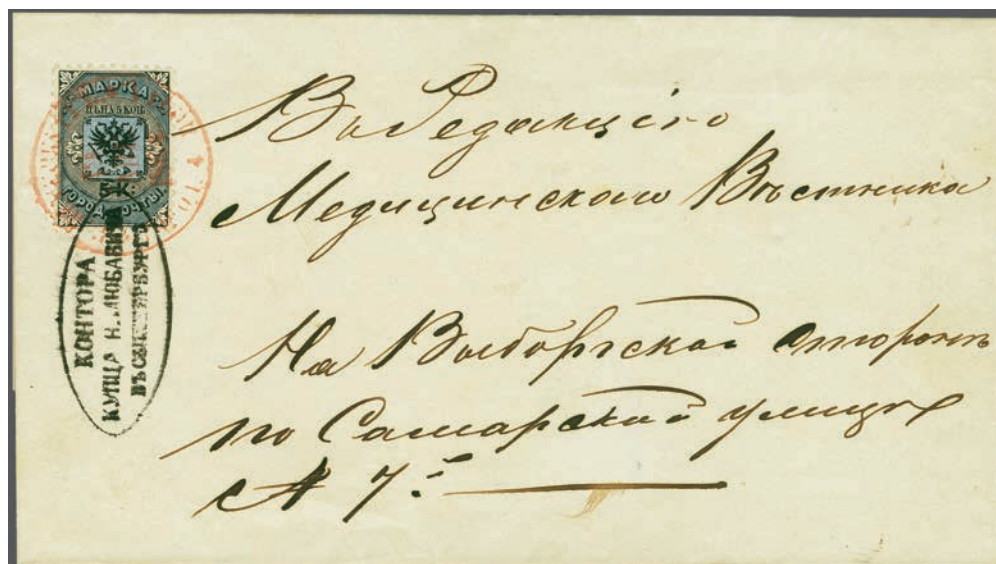 МАРКА
ЦѢНА 5 КОП.
5 К.
ГОРОД. ПОЧТЫ
КОНТОРА
КУПЦА Н. ЛЮБАВИНА
ВЪ С. ПЕТЕРБУРГѢ
Въ Редакцію
Медицинскаго Вѣстника
На Выборгской сторонѣ
по Самарской улицѣ
№ 7.